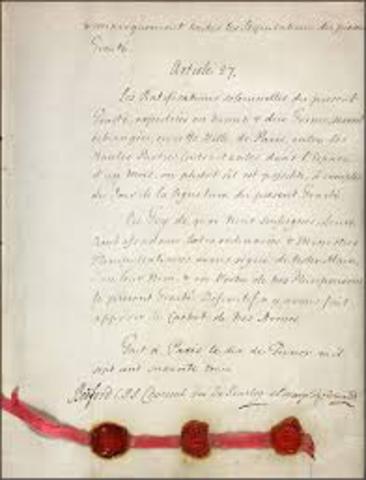 toutes les Stipulations du présent
Traité.
Article 27.
Les Ratifications solemnelles du present
Traité, expediées en bonne & due Forme, seront
échangées, en cette Ville de Paris, entre les
Hautes Parties Contractantes dans l'Espace
d'un Mois, ou plustôt s'il est possible, à compter
du Jour de la Signature du present Traité.
En Foy de quoi Nous soussignés Leurs
Ambassadeurs Extraordinaires & Ministres
Plenipotentiaires avons signé de Notre Main,
en leur Nom, & en Vertu de nos Pleinpouvoirs
le present Traité Definitif, & y avons fait
apposer le Cachet de nos Armes.
Fait à Paris le dix de Fevrier mil
sept cent soixante trois
Bedford C.P.S. Choiseul Duc de Praslin el Marq. de Grimaldi